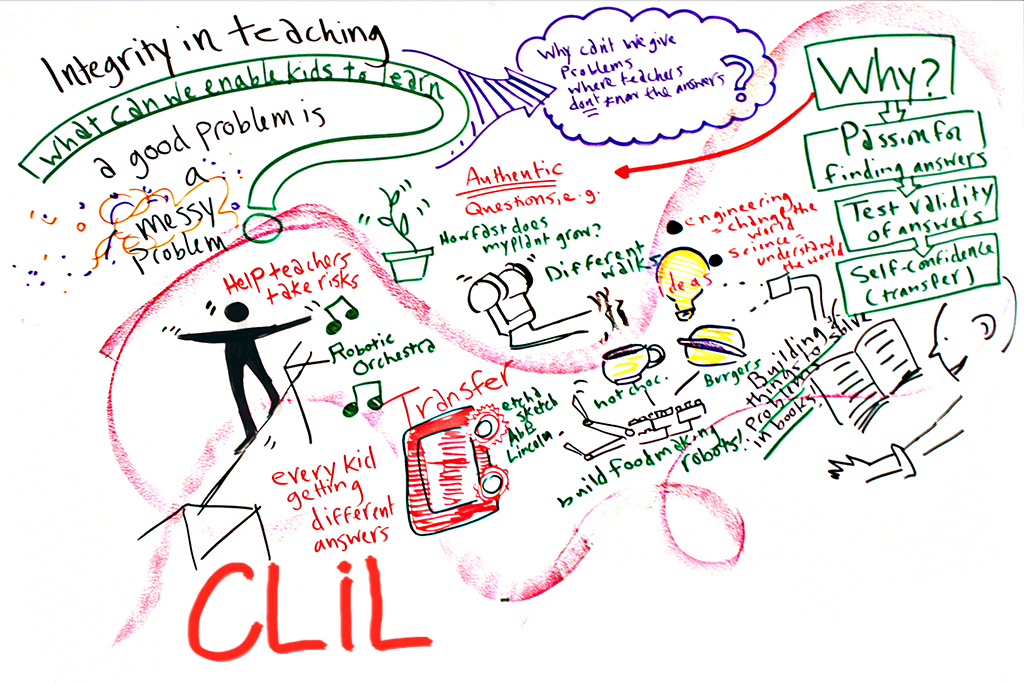 Integrity in teaching
What can we enable kids to learn
a good problem is
a
messy
Problem
Why can't we give
problems
where teachers
don't know the answers
?
Why?
Passion for
finding answers
Test validity
of answers
Self-confidence
(transfer)
Authentic
Questions, e.g.
How fast does
my plant grow?
Different
walks
engineering
= change the
world
science =
understand
the world
ideas
Help teachers
take risks
Robotic
Orchestra
Transfer
etch a
sketch
Abe
Lincoln
hot choc.
Burgers
build food making
robots!
Building
things to solve
problems
in books
every kid
getting
different
answers
CLiL